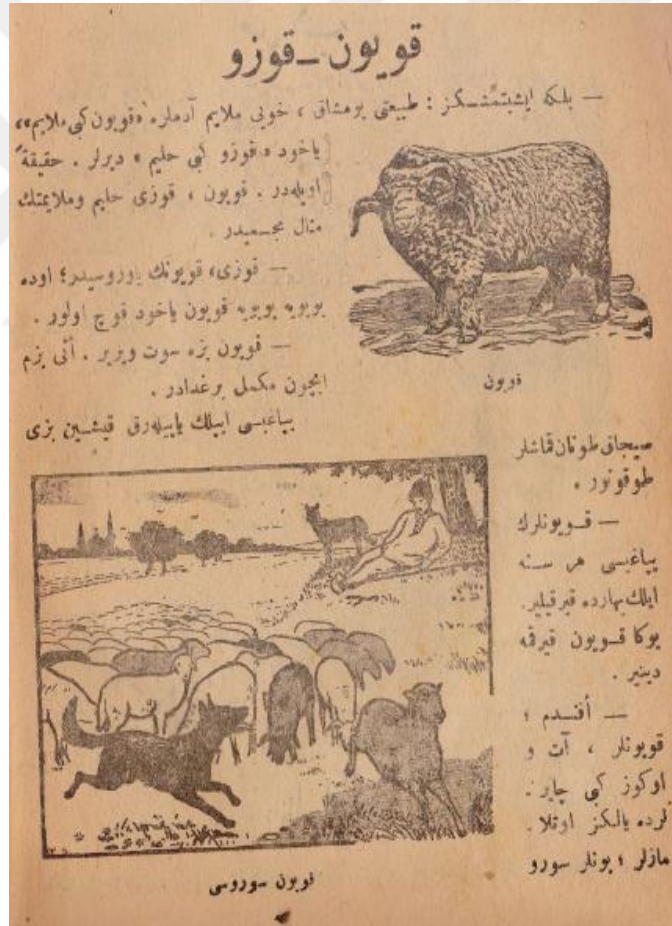 قویون ـ قوزو
— بلکه ایشیتمشسكز : طبیعتی یومشاق ، خویی ملایم آدملره «قویون کبی ملایم»
یاخود «قوزو کبی حلیم» دیرلر . حقیقةً
اویله‌در . قویون ، قوزی حلیم وملایمتك
مثال مجسمیدر .
— قوزی، قویونك یاوروسیدر؛ اوده
بویویه بویویه قویون یاخود قوچ اولور .
— قویون بزه سوت ویریر . أتی بزم
ایچون مکمل برغدادر .
قویون
یپاغیسی ایپلك یاپیله‌رق قیشین بزی
صیجاق طوتان قماشلر
طوقونور .
— قویونلرك
یپاغیسی هر سنه
ایلك بهارده قیرقیلیر.
بوکا قویون قیرقمه
دینیر .
— أفندم ؛
قویونلر ، آت و
اوکوز کبی چایر
لرده یالكز اوتلا
مازلر ؛ بونلر سورو
قویون سوروسی